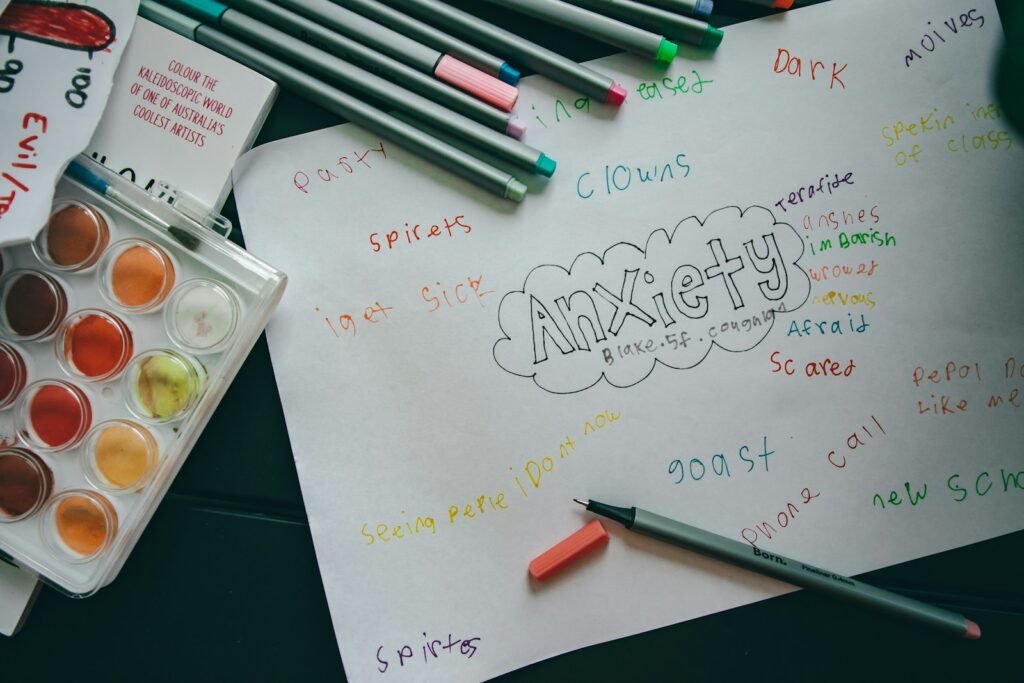 -100
-90
Evil/
COLOUR THE
KALEIDOSCOPIC WORLD
OF ONE OF AUSTRALIA'S
COOLEST ARTISTS
moives
Dark
ing eases
spekin
of class
party
clowns
Terafide
spirets
anshes
imBarish
wrowes
nervous
Afraid
Scared
iget sick
Anxiety
Blake.5f.
pepol
Like me
seeing peple iDont now
goast
phone call
new
Born.
Fineliner 0.4mm
spirtes